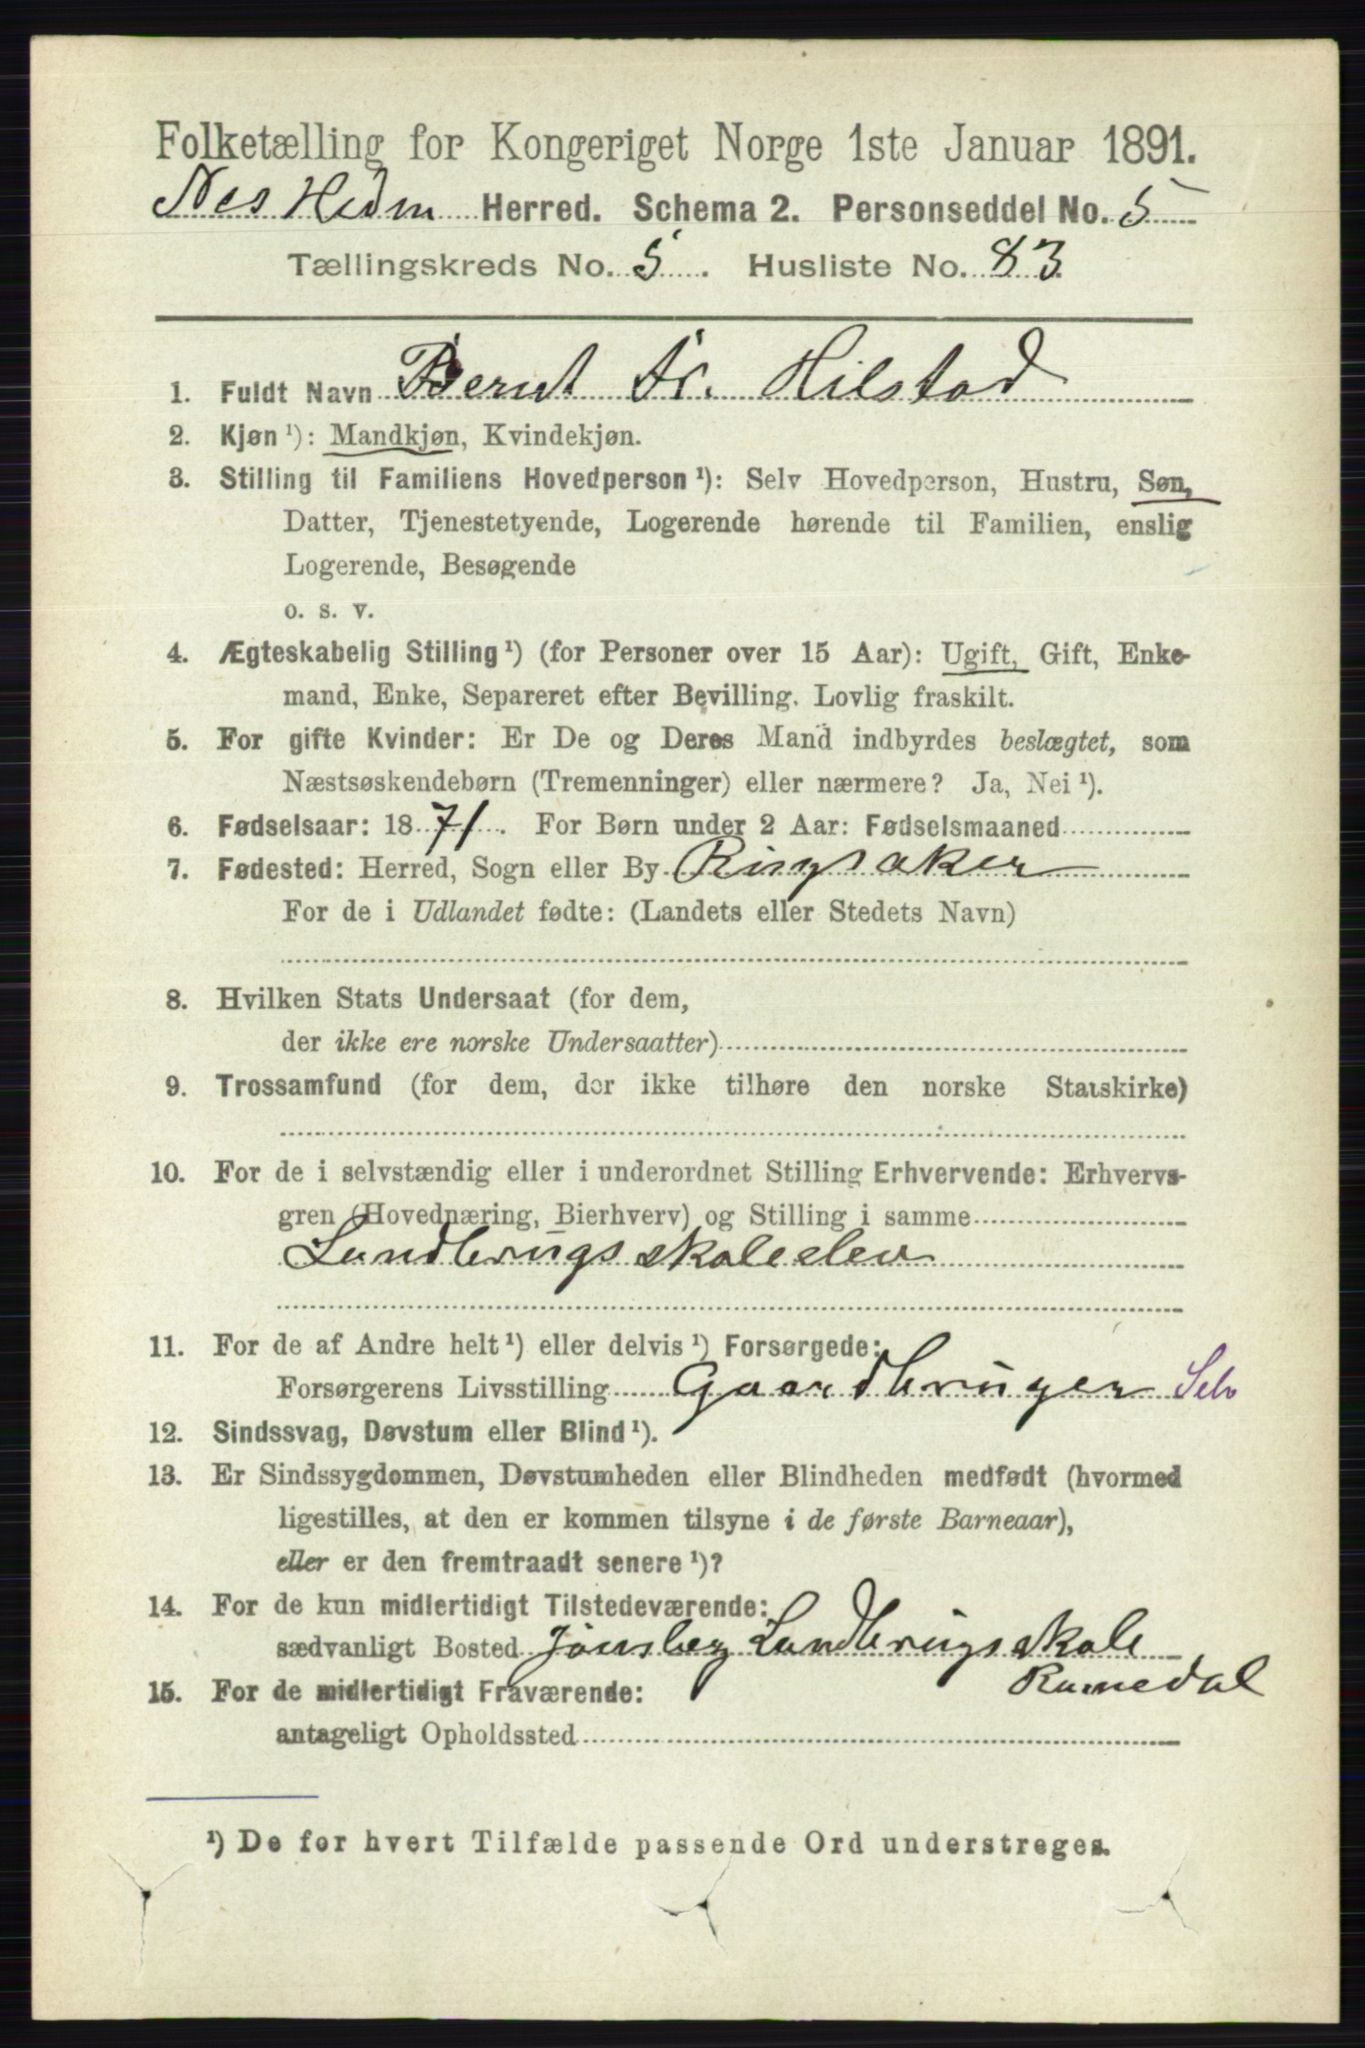 Folketælling for Kongeriget Norge 1ste Januar 1891.
Nes Hedm Herred. Schema 2. Personseddel No. 5
Tællingskreds No. 5. Husliste No. 83
1. Fuldt Navn Bernt Fr. Hilstad
2. Kjøn ¹): Mandkjøn, Kvindekjøn.
3. Stilling til Familiens Hovedperson ¹): Selv Hovedperson, Hustru, Søn,
Datter, Tjenestetyende, Logerende hørende til Familien, enslig
Logerende, Besøgende
o. s. v.
4. Ægteskabelig Stilling ¹) (for Personer over 15 Aar): Ugift, Gift, Enke-
mand, Enke, Separeret efter Bevilling. Lovlig fraskilt.
5. For gifte Kvinder: Er De og Deres Mand indbyrdes beslægtet, som
Næstsøskendebørn (Tremenninger) eller nærmere? Ja, Nei ¹).
6. Fødselsaar: 1871. For Børn under 2 Aar: Fødselsmaaned
7. Fødested: Herred, Sogn eller By Ringsaker
For de i Udlandet fødte: (Landets eller Stedets Navn)
8. Hvilken Stats Undersaat (for dem,
der ikke ere norske Undersaatter)
9. Trossamfund (for dem, der ikke tilhøre den norske Statskirke)
10. For de i selvstændig eller i underordnet Stilling Erhvervende: Erhvervs-
gren (Hovednæring, Bierhverv) og Stilling i samme
Landbrugsskoleelev
11. For de af Andre helt ¹) eller delvis ¹) Forsørgede:
Forsørgerens Livsstilling Gaardbruger Selv
12. Sindssvag, Døvstum eller Blind ¹).
13. Er Sindssygdommen, Døvstumheden eller Blindheden medfødt (hvormed
ligestilles, at den er kommen tilsyne i de første Barneaar),
eller er den fremtraadt senere ¹)?
14. For de kun midlertidigt Tilstedeværende:
sædvanligt Bosted Jønsberg Landbrugsskole
Romedal
15. For de midlertidigt Fraværende:
antageligt Opholdssted
¹) De for hvert Tilfælde passende Ord understreges.